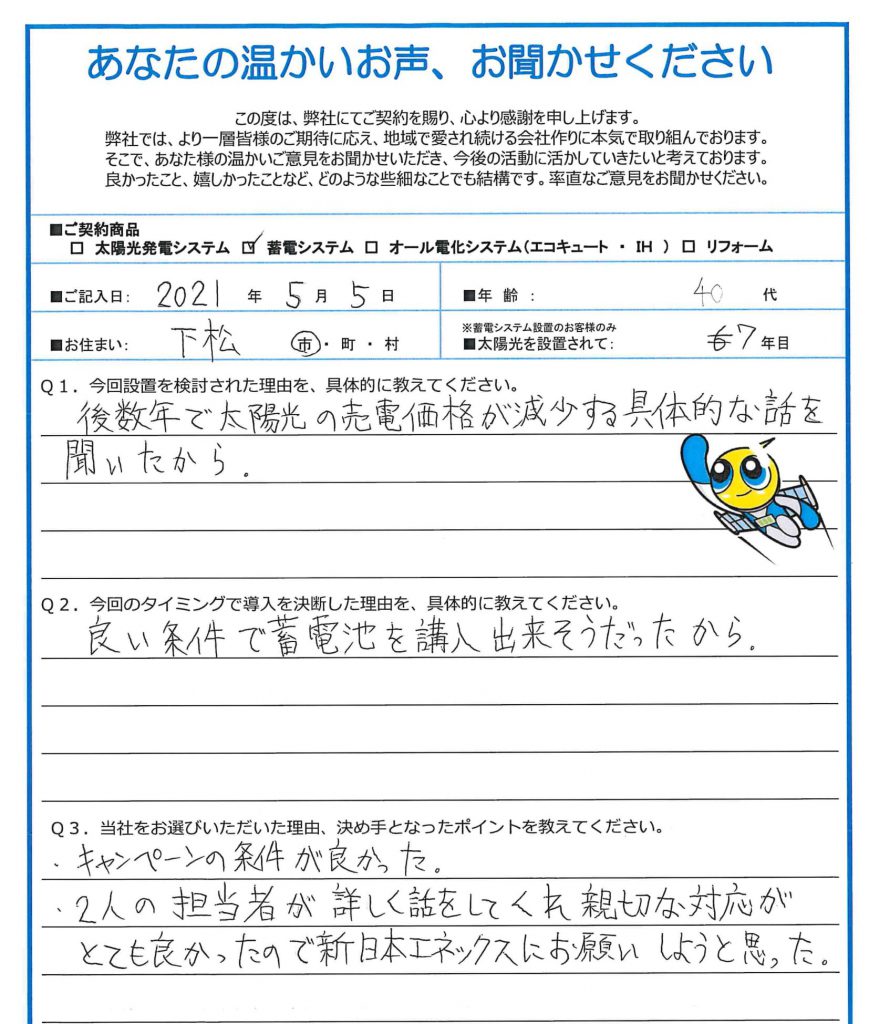 あなたの温かいお声、お聞かせください
この度は、弊社にてご契約を賜り、心より感謝を申し上げます。
弊社では、より一層皆様のご期待に応え、地域で愛され続ける会社作りに本気で取り組んでおります。
そこで、あなた様の温かいご意見をお聞かせいただき、今後の活動に活かしていきたいと考えております。
良かったこと、嬉しかったことなど、どのような些細なことでも結構です。率直なご意見をお聞かせください。
■ご契約商品
□ 太陽光発電システム ☑ 蓄電システム □ オール電化システム(エコキュート ・ IH ) □ リフォーム
■ご記入日: 2021 年 5 月 5 日
■年 齢 : 40 代
■お住まい: 下松 市・町・村
※蓄電システム設置のお客様のみ
■太陽光を設置されて: 7 年目
Q1.今回設置を検討された理由を、具体的に教えてください。
後数年で太陽光の売電価格が減少する具体的な話を
聞いたから.
Q2.今回のタイミングで導入を決断した理由を、具体的に教えてください。
良い条件で蓄電池を講入出来そうだったから.
Q3.当社をお選びいただいた理由、決め手となったポイントを教えてください。
・キャンペーンの条件が良かった.
・2人の担当者が詳しく話をしてくれ親切な対応が
とても良かったので新日本エネックスにお願いしようと思った.